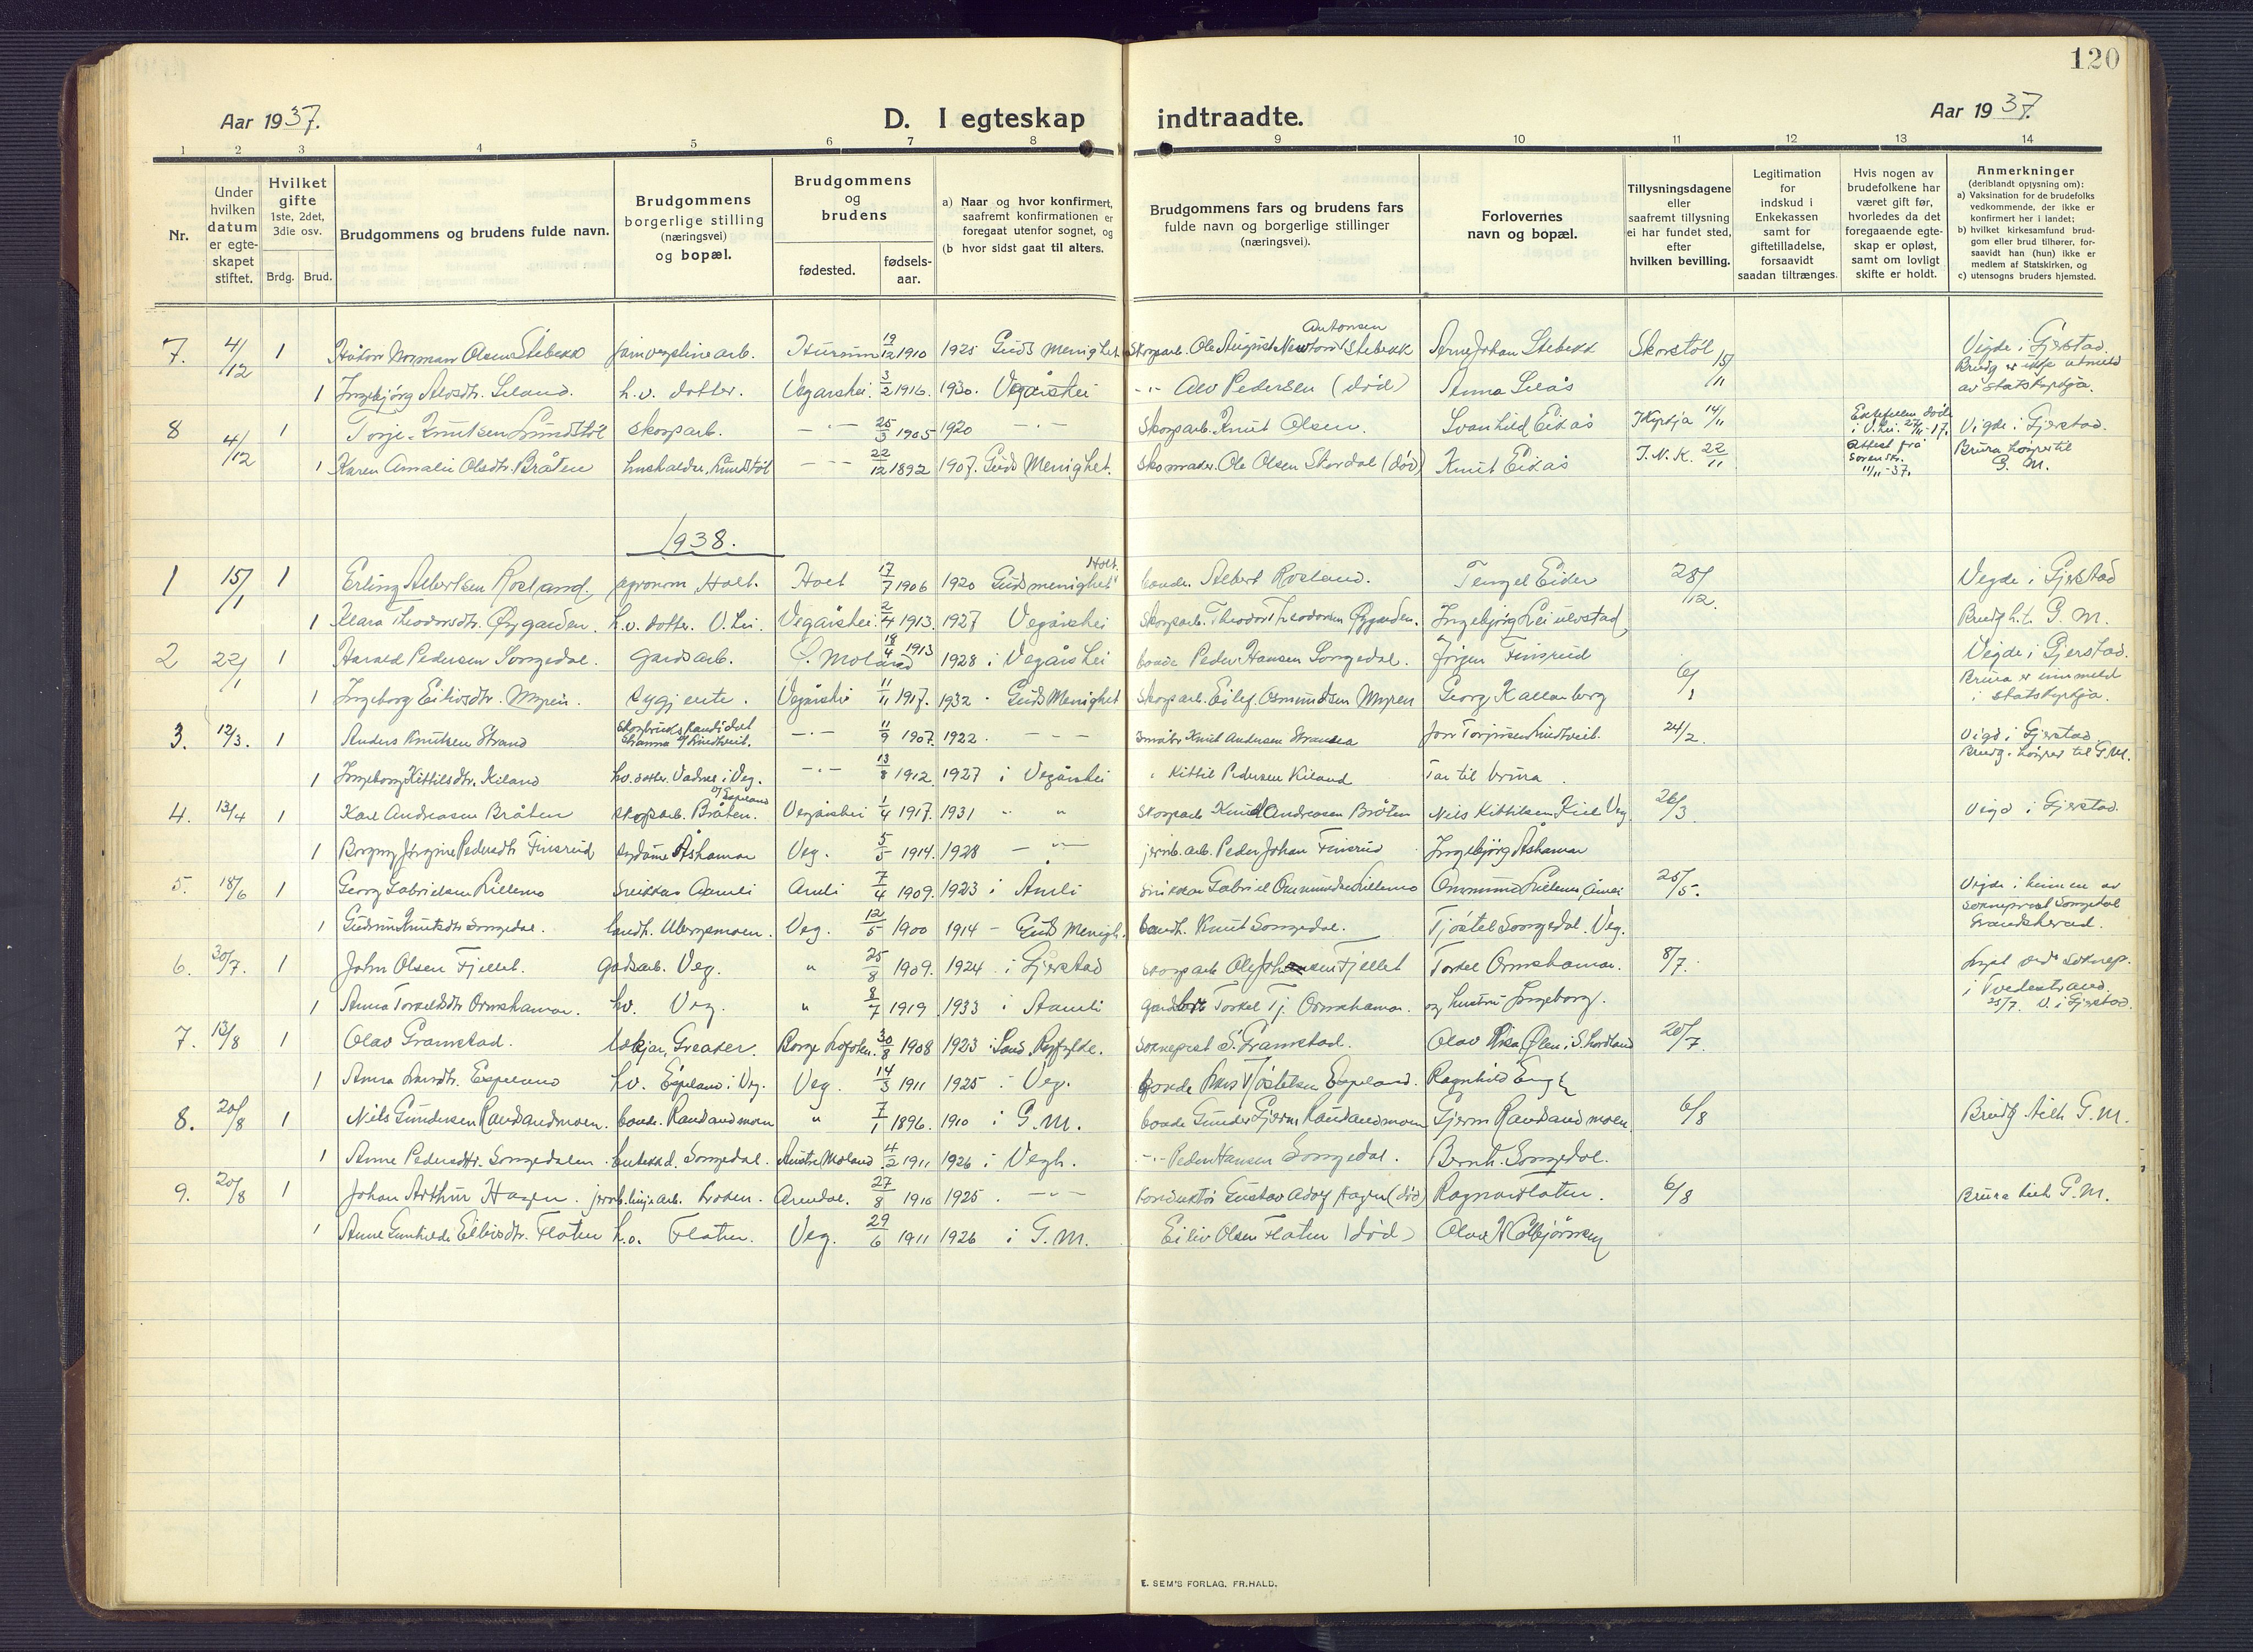 120
Aar 1937.
D. I egteskap indtraadte.
Aar 1937.
1 2 3 4 5 6 7 8 9 10 11 12 13 14
Nr.
Under hvilken datum er egte- skapet stiftet.
Hvilket gifte 1ste, 2det, 3die osv.
Brdg. Brud.
Brudgommens og brudens fulde navn.
Brudgommens borgerlige stilling (næringsvei) og bopæl.
Brudgommens og brudens
fødested.
fødsels- aar.
a) Naar og hvor konfirmert, saafremt konfirmationen er foregaat utenfor sognet, og
(b hvor sidst gaat til alters.
Brudgommens fars og brudens fars fulde navn og borgerlige stillinger (næringsvei).
Forlovernes navn og bopæl.
Tillysningsdagene eller saafremt tillysning ei har fundet sted, efter hvilken bevilling.
Legitimation for indskud i Enkekassen samt for giftetilladelse, forsaavidt saadan tiltrænges.
Hvis nogen av brudefolkene har været gift før, hvorledes da det foregaaende egte- skap er opløst, samt om lovligt skifte er holdt.
Anmerkninger
(deriblandt oplysning om):
a) Vaksination for de brudefolks vedkommende, der ikke er konfirmert her i landet;
b) hvilket kirkesamfund brud- gom eller brud tilhører, for- saavidt han (hun) ikke er medlem af Statskirken, og
c) utensogns bruders hjemsted.
7. 4/12 1 Håkon Norman Olsen Stebekk 19/12 1910 1925 Guds Menighet Skogsarb. Ole August Newton Antonsen Stebekk Arne Johan Stebekk Skorstøl 15/11 Vigde i Gjerstad. Brudg er ikke utmeld av statskyrkja.
1 Ingebjørg Alvsdtr. Seland. h.v. dotter. Vegårshei. 3/2 1916. 1930. Vegårshei -"- Alv Pedersen (død) Anna Selås
8 4/12 1 Torje Knutsen Lundstøl skogsarb. -"- 25/3 1905 1920 -"- Skogsarb. Knut Olsen. Svanhild Eikås I Kyrkja 14/11 Vigde i Gjerstad.
1 Karen Amalie Olsdtr. Bråten hushalder, Lundstøl -"- 22/12 1892 1907. Guds Menighet. Skomaker. Ole Olsen Skordal (død) Knut Eikås I. N. K. 22/11 11/11-37. Brura høyrer til G. M.
1938.
1 15/1 1 Erling Albertsen Rosland. agronom Holt. Holt 17/7 1906 1920 Gudsmenighet Holt. bonde. Albert Rosland. Tengel Eider 28/12. Vegde i Gjerstad
1 Klara Theodorsdtr. Øygarden. h.v. dotter. V.hei. Vegårshei. 2/4 1913. 1927 Vegårshei Skogsarb. Theodor Theodorsen Øygarden. Brudg h.t. G. M.
2 22/1 1 Harald Pedersen Songedal. gardsarb. 18/4 1913 1928 i Vegårshei bonde Peder Hansen Songedal. Jørgen Finsrud 6/1 Vegde i Gjerstad.
1 Ingeborg Eilivsdtr. Myren. Vegårshei 11/11 1917. 1932 - Guds Menighet Skogsarb. Eilef Osmundsen Myren Georg Kallenberg Brura er innmeld i statskyrkja.
3. 12/3. 1 Anders Knutsen Strand Skogbrukskandidat -"- 11/9 1907. 1922. - - - småbr Knut Andersen Jon Torjusen Lindtveit. 24/2. Vigd i Gjerstad. Brudg. høyrer til G.M.
1 Ingeborg Kittilsdtr. Kiland hv. dotter. Vadnes i Veg. -"- 13/8 1912. 1927 i Vegårshei " Kittil Pedersen Kiland Far til brura.
4. 13/4 1 Karl Andreasen Bråten skogsarb. Bråten. Vegårshei 1/4 1917. 1931 " " skogsarb Knud Andreasen Bråten Nils Kittilsen Veg. 26/3 Vigd i Gjerstad.
1 Borgny Jørgine Pedersdtr Finsrud sydame Åshamar Veg. 5/5 1914. 1928 - " - jernb. arb. Peder Johan Finsrud Ingebjørg Åshamar
5. 18/6 1 Georg Gabrielsen Lillemo snikkar Aamli Amli 7/4 1909. 1923 i Amli snikkar Gabriel Lillemo 25/5. Vigde i heimen av sokneprest Songedal Gransherad.
1 Gudrun Knutsdtr Songedal. landh. Ubergsmoen. Veg. 12/5 1900 1914 - Guds Menigh. landh. Knut Songedal. Tjøstel Songedal. Veg.
6. 30/7. 1 John Olsen Fjellet. gardsarb. Veg. " 25/8 1909. 1924 i Gjerstad skogsarb Ole Johansen Fjellet Torkel Ormshamar. 8/7. Lyst ved soknep. i Tvedestrand.
1 Anna Torkelsdtr Ormshamar. hv. Veg. " 8/7 1919 1933 i Aamli gardbr. Torkel Tj. Ormshamar. og hustru Ingeborg. 25/7. V. i Gjerstad.
7. 13/8 1 Olav Gramstad. Greaker. Borge Lofoten. 30/8 1908 1923 i Sand Ryfylke. sokneprest S. Gramstad. Olav Ølen i S. Hordland 20/7
1 Anna Larsdtr. Espeland hv. Espeland i Veg. Veg. 14/3 1911 1925 i Veg. bonde Lars Tjøstelsen Espeland. Ragnhild Eng
8. 20/8 1 Nils Gundersen Raudsandmoen. bonde. Raudsandmoen " 7/1 1896. 1910 i G.M. bonde Gunder Gjerm. Raudsandmoen Gjerm Raudsandmoen. 6/8 Brudg tilh G. M.
1 Anne Pedersdtr. Songedalen. Songedal. Austre Moland 4/2 1911 1926 i Vegh. -"- Peder Hansen Songedal. Bernh. Songedal.
9. 20/8 1 Johan Arthur Hagen. jernb.linjearb. Arendal. 27/8 1910 1925. -"- Konduktør Gustav Adolf Hagen (død) Ragnar Flaten. 6/8 Brura tilh G. M.
1 Anne Gunhilde Eilivsdtr. Flaten h.v. Flaten. Veg. 29/6 1911 1926 i G.M. Eiliv Olsen Flaten (død)
E. SEM'S FORLAG, FR.HALD.